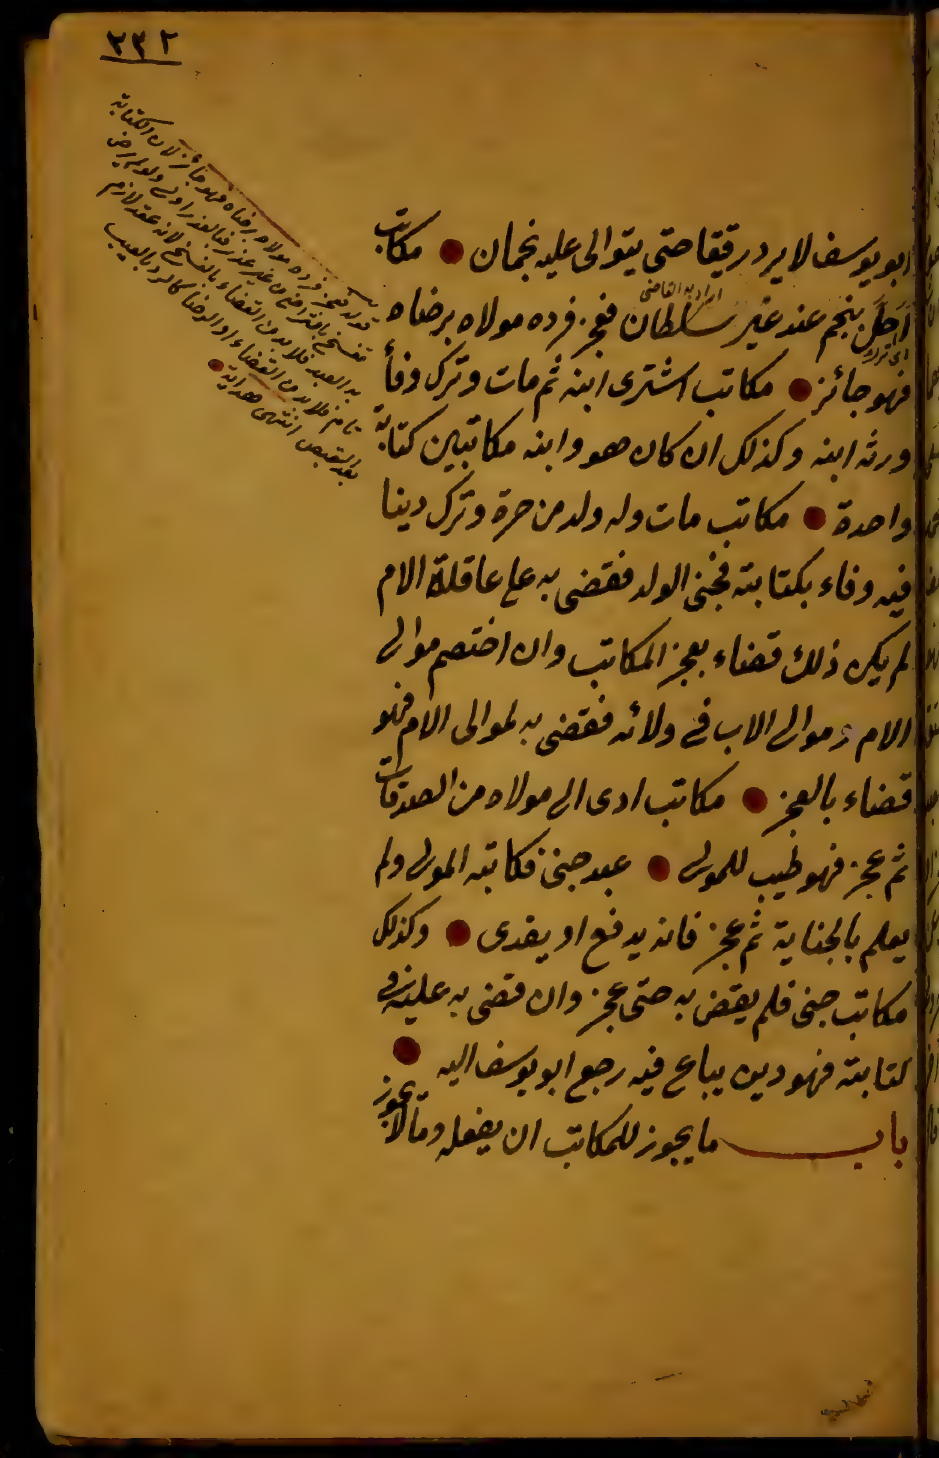 ٣٣٢
ابو يوسف لا يرد رقيقا حتى يتوالى عليه نجمان ● مكاتب
اخل بنجم عند غير سلطان فعجز فرده مولاه برضاه
اراد به القاضى
اى ترك
فهو جائز ● مكاتب اشترى ابنه ثم مات وترك وفأ
ورثه ابنه وكذلك ان كان هو وابنه مكاتبين كتابة
واحدة ● مكاتب مات وله ولد من حرة وترك دينا
فيه وفاء بكتابته فجنى الولد فقضى به على عاقلة الام
لم يكن ذلك قضاء بعجز المكاتب وان اختصم موالى
الام وموالى الاب فى ولائه فقضى به لموالى الام فهو
قضاء بالعجز ● مكاتب ادى الى مولاه من الصدقات
ثم عجز فهو طيب للمولى ● عبد جنى فكاتبه المولى ولم
يعلم بالجناية ثم عجز فانه يدفع او يفدى ● وكذلك
مكاتب جنى فلم يقض به حتى عجز وان قضى به عليه فى
كتابته فهو دين يباع فيه رجع ابو يوسف اليه ●
باب ما يجوز للمكاتب ان يفعله وما لا يجوز
قوله فعجز فرده مولاه برضاه فهو جائز لان الكتابة
تفسخ بالتراضى من غير عذر فبالعذر اولى ولو لم يرض
به العبد فلا بد من القضاء بالفسخ لانه عقد لازم
تام فلا بد من القضاء او الرضا كالرد بالعيب
بعد القبض انتهى هداية ●